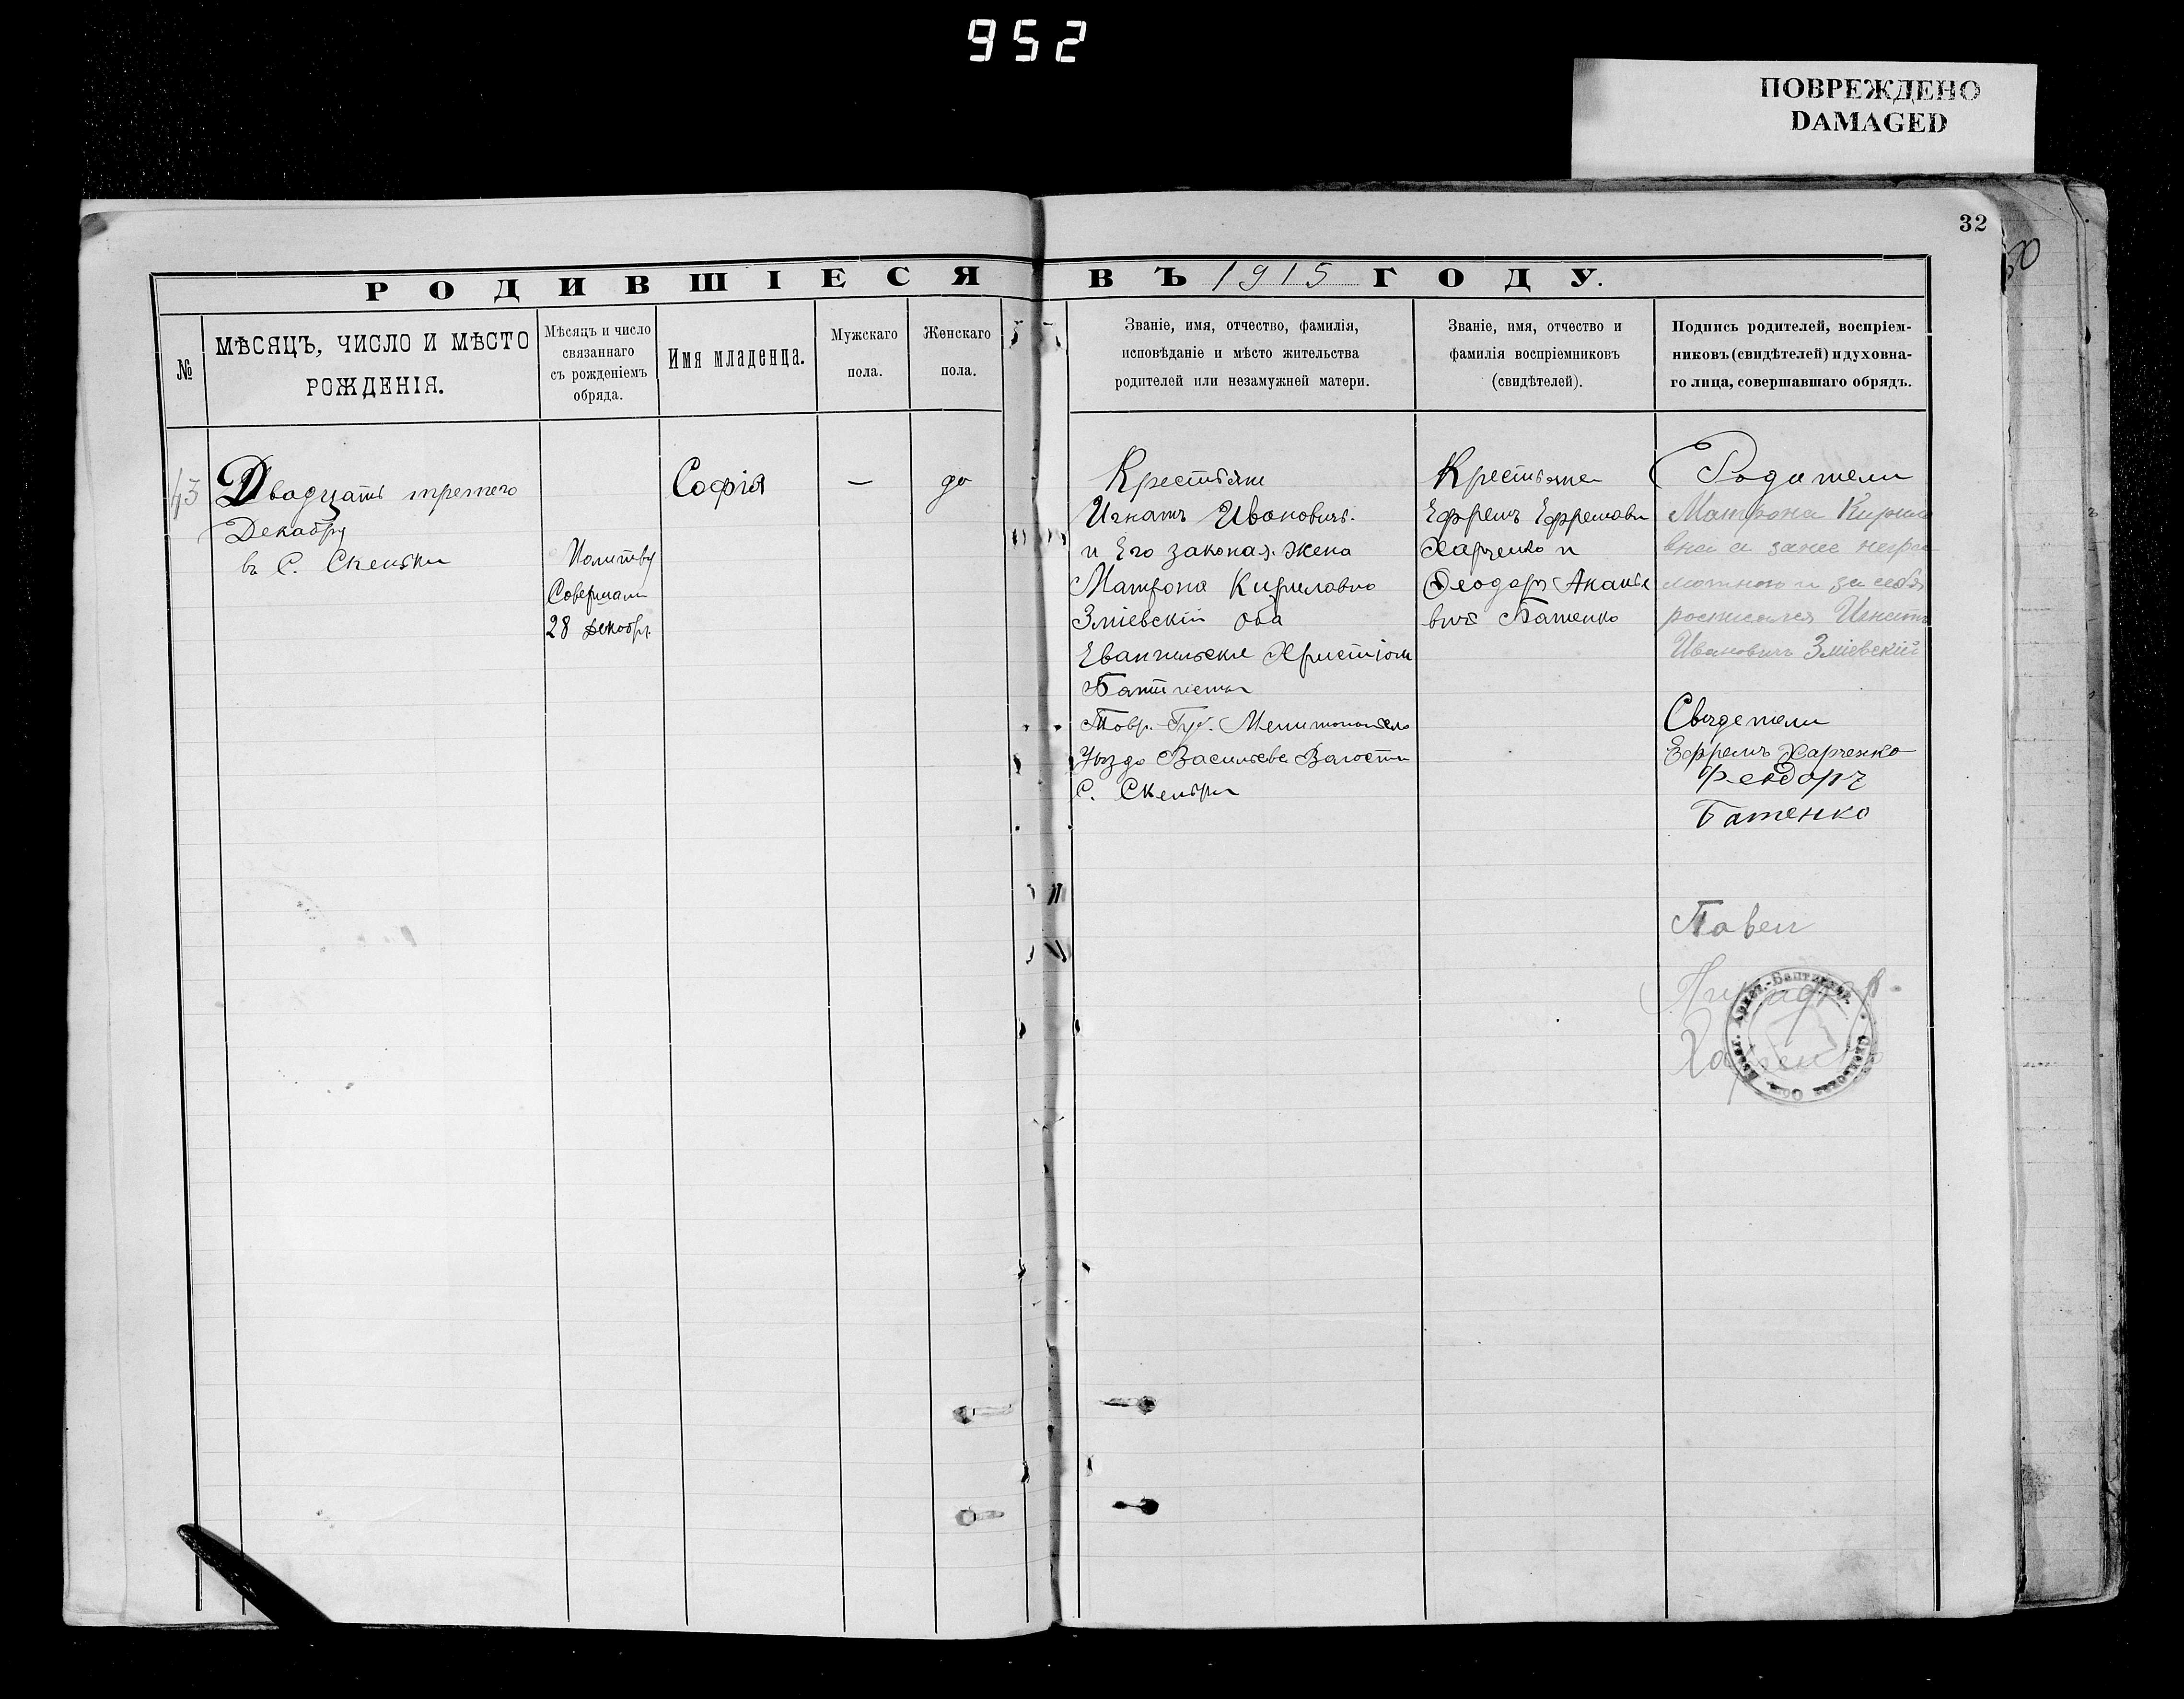 952
ПОВРЕЖДЕНО
DAMAGED
32
50
РОДИВШІЕСЯ ВЪ 1915 ГОДУ.
№
МѢСЯЦЪ, ЧИСЛО И МѢСТО
РОЖДЕНІЯ.
Мѣсяцъ и число
связаннаго
съ рожденіемъ
обряда.
Имя младенца.
Мужскаго
пола.
Женскаго
пола.
Званіе, имя, отчество, фамилія,
исповѣданіе и мѣсто жительства
родителей или незамужней матери.
Званіе, имя, отчество и
фамилія воспріемниковъ
(свидѣтелей).
Подпись родителей, воспріем-
никовъ (свидѣтелей) и духовна-
го лица, совершавшаго обрядъ.
43
Двадцать третего
Декабру
въ С. Скельки
Молитву
Совершали
28 Декабр.
Софія
—
до
Крестьяни
Игнатъ Ивановичъ.
и Его законая. жена
Матрона Кириловно
Зміевскій оба
Евангельски Христіони
Баптисты
Товр. Губ. Мелитопольско
Уѣздо Васильева Волости
С. Скельки
Крестьяне
Ефремъ Ефремови
Харченко и
Феодоръ Ананье
вич Батенко
Родители
Матрона Кирил
вна а занее негра
мотною и за себя
росписался Игнатъ
Ивановичъ Зміевскій
Свидетели
Ефремъ Харченко
Феодоръ
Батенко
Павел
Харченко